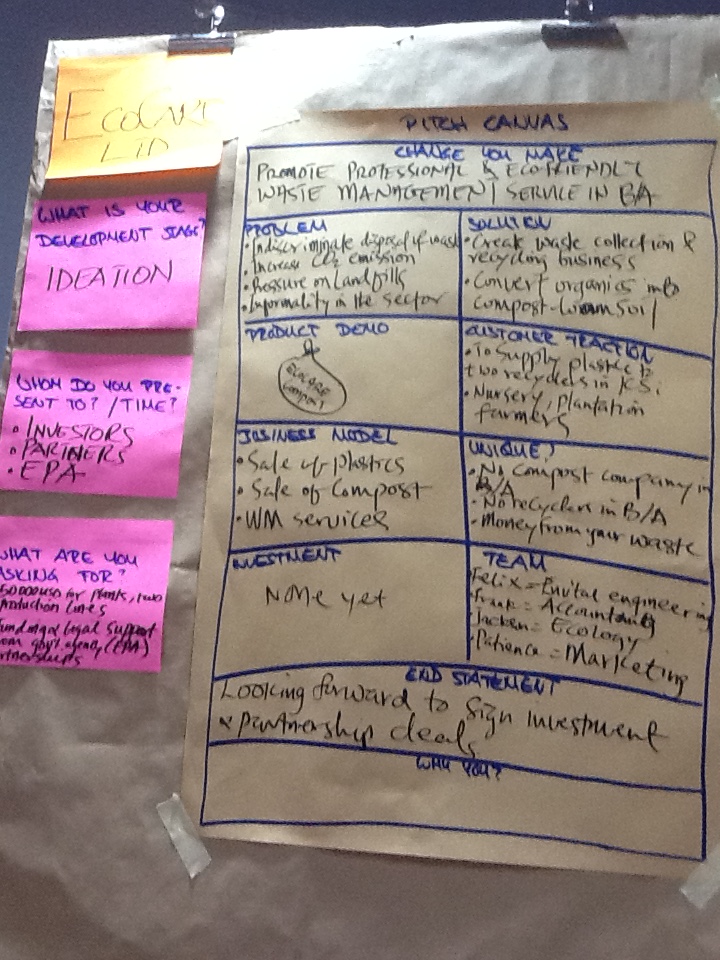 ECOCARE
LTD
WHAT IS YOUR
DEVELOPMENT STAGE?
IDEATION
WHOM DO YOU PRE-
SENT TO? /TIME?
• INVESTORS
• PARTNERS
• EPA
WHAT ARE YOU
ASKING FOR?
50000USD for plants, two
production lines
Funding & legal support
from gov't agency (EPA)
PITCH CANVAS
CHANGE YOU MAKE
PROMOTE PROFESSIONAL & ECOFRIENDLY
WASTE MANAGEMENT SERVICE IN B/A
PROBLEM
• Indiscriminate disposal of waste
• Increase CO2 emission
• Pressure on Landfills
• Informality in the sector
SOLUTION
• Create waste collection &
recycling business
• Convert organics into
compost-
PRODUCT DEMO
ECOCARE
Compost
CUSTOMER TRACTION
• To Supply plastic to
two recyclers in KSi
• Nursery, Plantation
farmers
BUSINESS MODEL
• Sale of plastics
• Sale of Compost
• WM services
UNIQUE?
• No Compost company in
B/A
• No recyclers in B/A
• Money from your waste
INVESTMENT
None yet
TEAM
Felix = Envital engineering
• Frank = Accountant
= Ecology
• Patience = Marketing
END STATEMENT
Looking forward to sign investment
& partnership deals
WHY YOU?